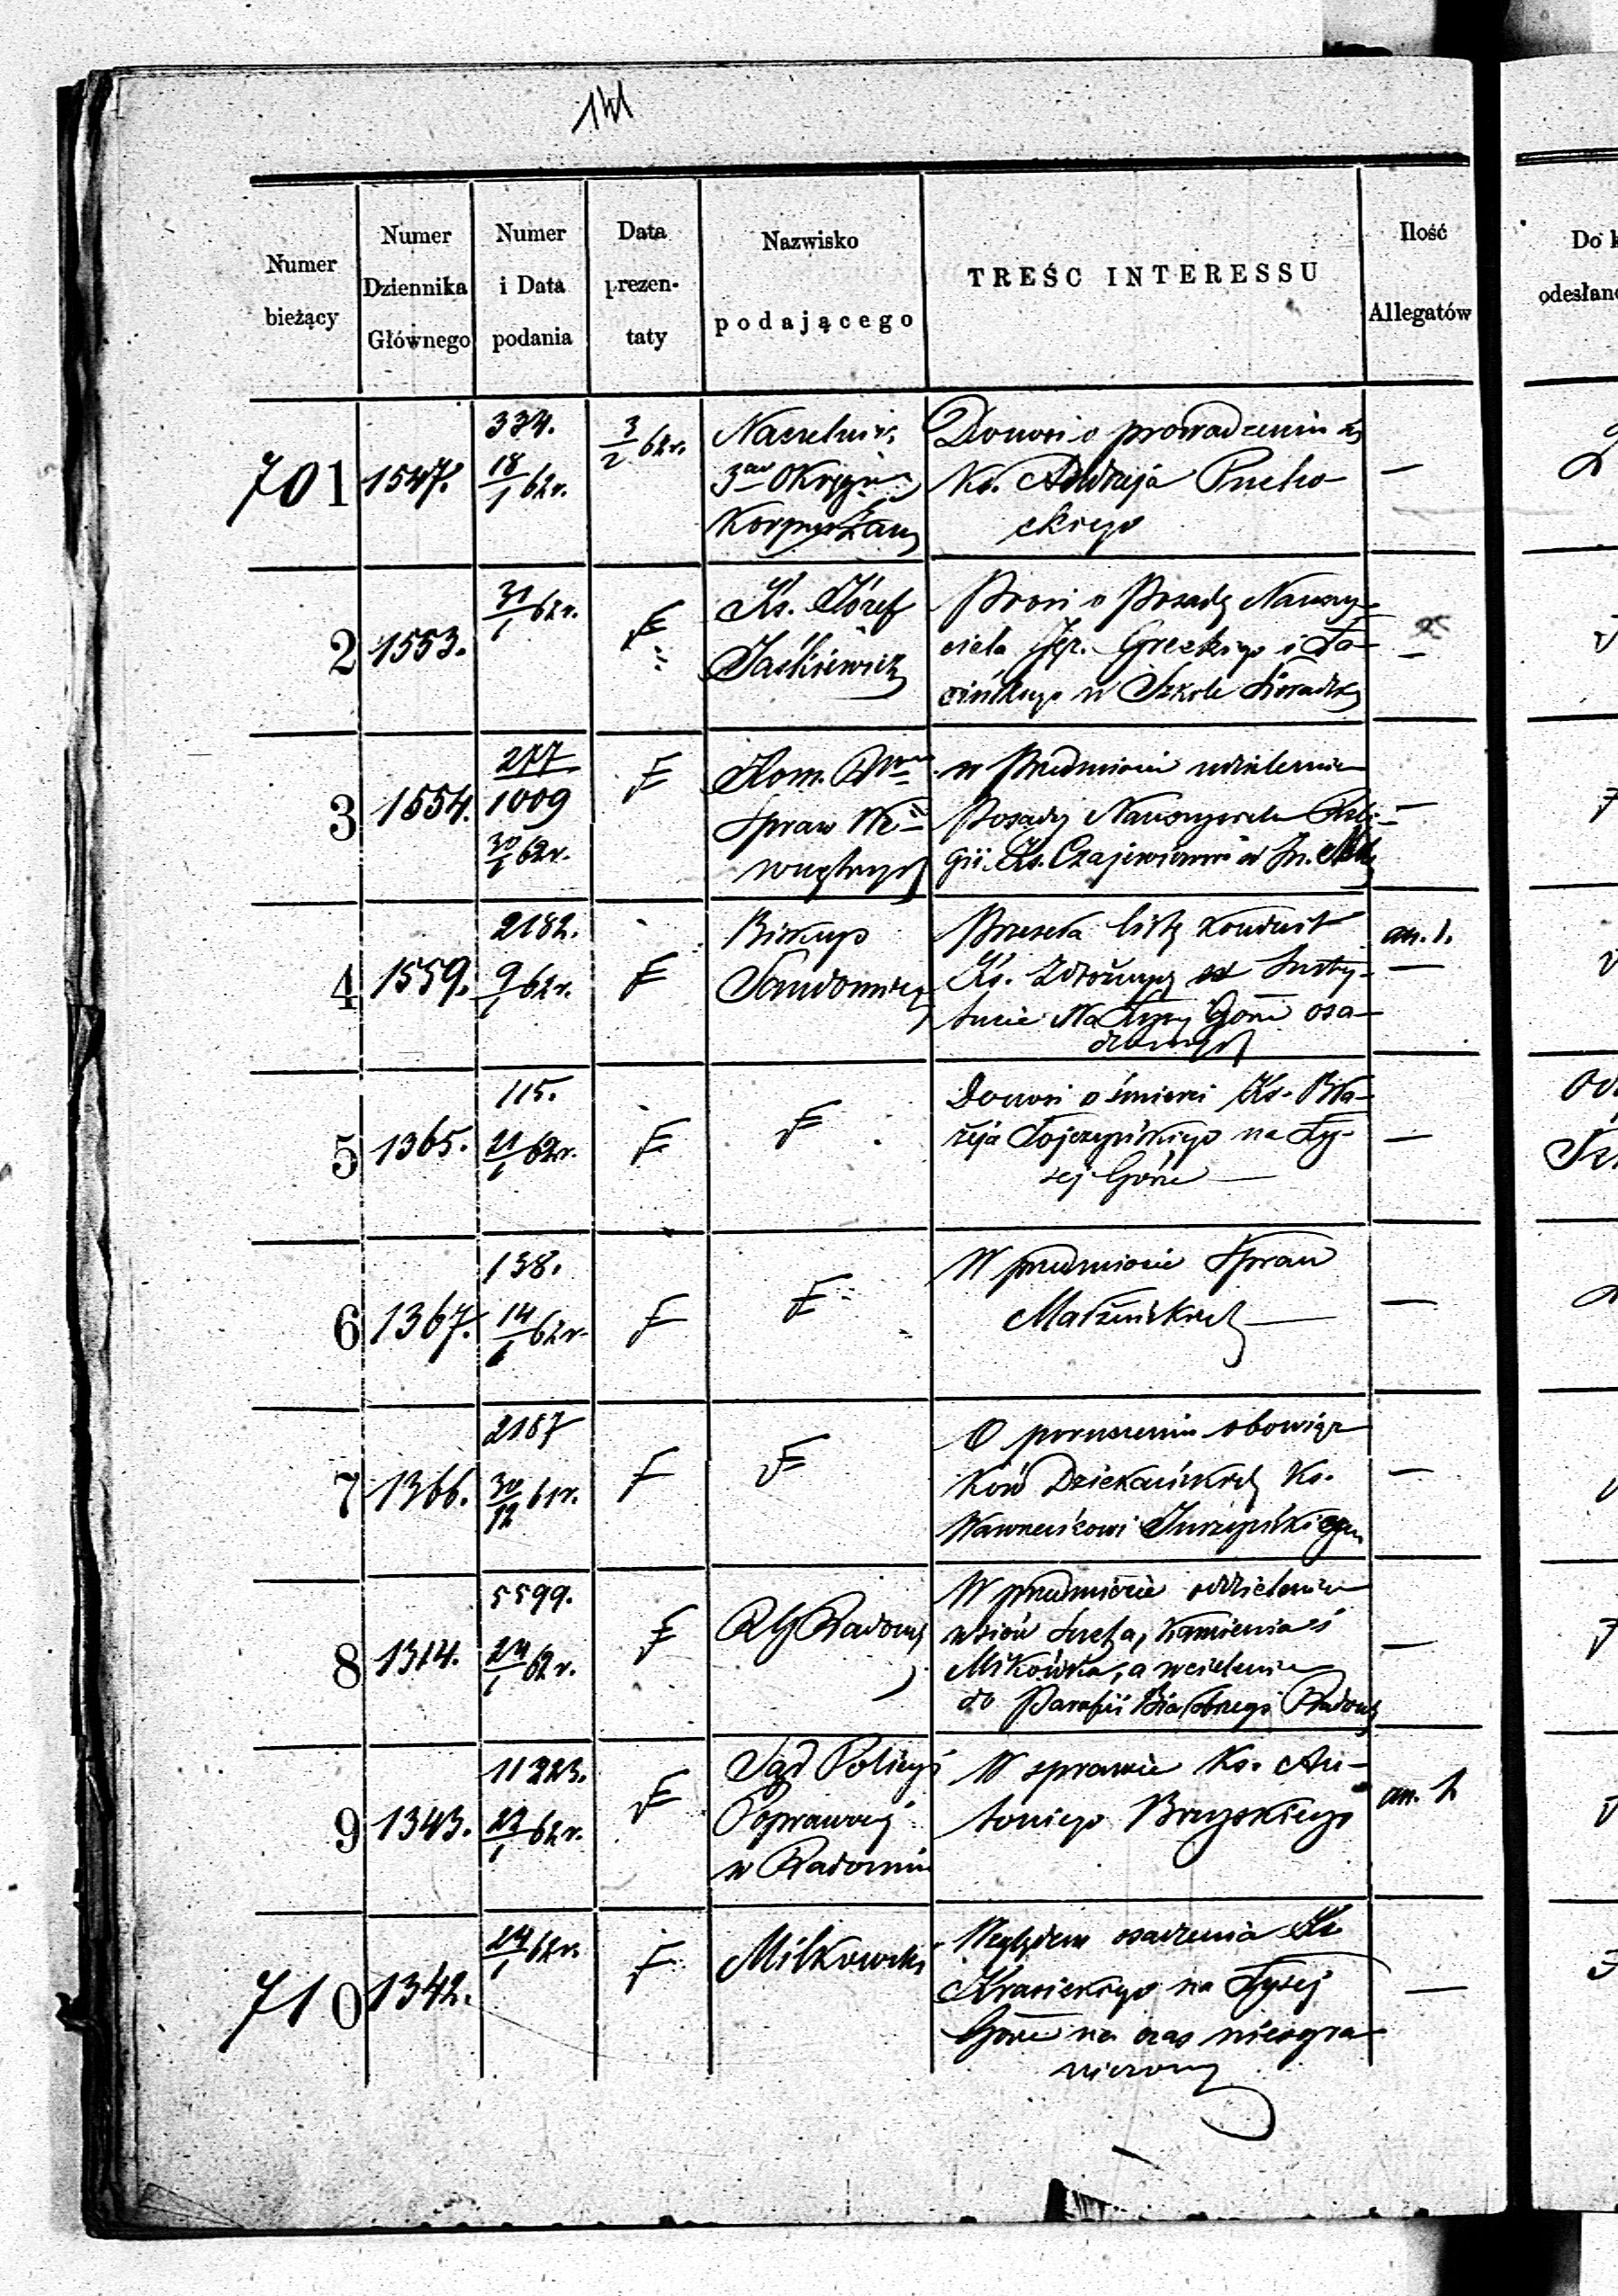 141
Numer bieżący
Numer Dziennika Głównego
Numer i Data podania
Data prezen- taty
Nazwisko podającego
TREŚC INTERESSU
Ilość Allegatów
Do
odesłano
701
1547.
334.
18/1 62r.
3/2 62r.
Naczelnik
3go Okręgu
Korpusu Żan
Donosi o prowadzeniu się
Ks. Andrzeja Pucho-
ckiego
—
2
1553.
31/1 62r.
Ks. Józef
Jaśkiewicz
Prosi o Posadę Nauczy-
ciela Jęz. Greckiego i Ła-
cińskiego w Szkole Sieradzkiej
—
3
1554.
277
1009
30/1 62r.
Kom. Rwa
Spraw We-
wnętrznych
w Przedmiocie udzielenia
Posady Nauczyciela Reli-
gii Ks. Czajewiczowi w
—
4
1559.
2182.
9/1 62r.
Biskup
Sandomirs
Przeseła listę konduit
Ks. Zdrożnych w Insty-
tucie Na Łysej Górze osa-
dzonych
an. 1.
—
5
1365.
115.
21/1 62r.
Donosi o śmierci Ks. Bła-
żeja Łojczyńskiego na Ły-
sej Górze —
—
6
1367.
138.
14/1 62r.
W przedmiocie Spraw
Małżeńskich —
—
7
1366.
2187
30/12 61r.
O poruczeniu obowiąz
ków Dziekańskich Ks.
Wawrzeńcowi
—
8
1314.
5599.
24/1 62r.
RG Radoms
W przedmiocie oddzielenia
wsiów Sucha, Kamienia i
Mikówka, a wcielenia
do Parafii Białobrzegi Radoms
—
9
1343.
11223.
23/1 62r.
Sąd Policyi
Poprawczej
w Radomiu
W sprawie Ks. An-
toniego Brzyskiego
an. 1
710
1342.
24/1 62r.
Milkowski
Względem osadzenia Ks
Krasickiego na Łysej
Górze na czas nieogra
niczony
—